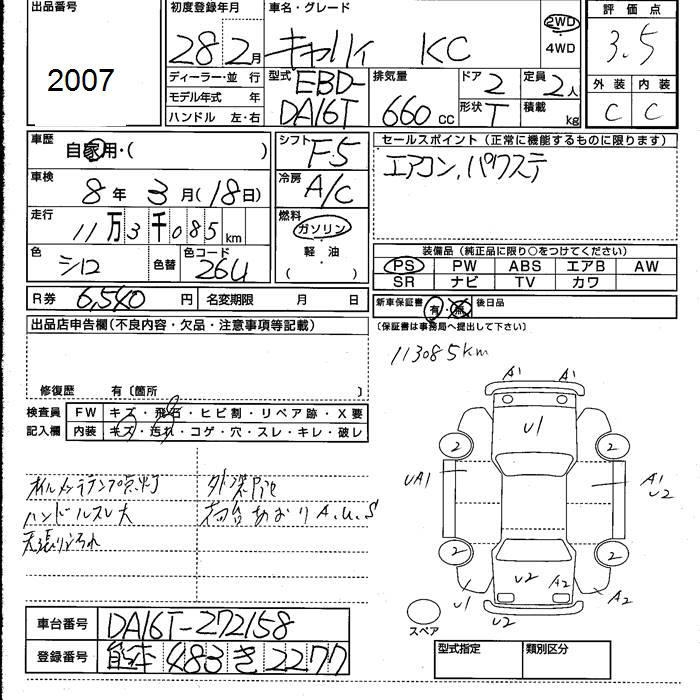 出品番号
2007
初度登録年月
28 2月
ディーラー・並 行
モデル年式 年
ハンドル 左・右
車名・グレード
キャリイ KC
2WD
4WD
型式 EBD-
DA16T
排気量
660 cc
ドア 2
形状 T
定員 2人
積載 kg
評価点
3.5
外装 内装
C C
車歴
自家用・( )
車検
8年 3月(18日)
走行
11万3千085km
色
シロ
色替
色コード
26U
シフト
F5
冷房
A/C
燃料
ガソリン
軽油
( )
セールスポイント(正常に機能するものに限ります)
エアコン、パワステ
装備品(純正品に限り○をつけてください)
PS PW ABS エアB AW
SR ナビ TV カワ
R券 6,540円 名変期限 月 日
新車保証書 有・無 後日品
(保証書は事務局へ提出して下さい)
出品店申告欄(不良内容・欠品・注意事項等記載)
修復歴 有〔箇所 〕
検査員
記入欄
FW キズ・飛石・ヒビ割・リペア跡・X要
内装 キズ・汚れ・コゲ・穴・スレ・キレ・破レ
オイルメンテランプ点灯
ハンドルスレ大
天張りよごれ
荷台あおりA.U.S
113085km
A1 A1
U1
2 2
UA1
A1
U2
2 2
U1
U2 A2
A2
U2
スペア
車台番号 DA16T-272158
登録番号 熊本 483 き 2277
型式指定 類別区分